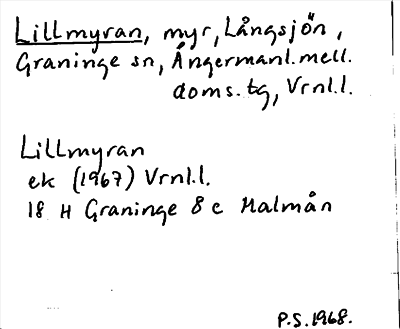 Lillmyran, myr, Långsjön,
Graninge sn, Ångermanl. mell.
doms. tg, Vrnl.l.
Lillmyran
ek (1967) Vrnl.l.
18 H Graninge 8 c Malmån
P.S. 1968.